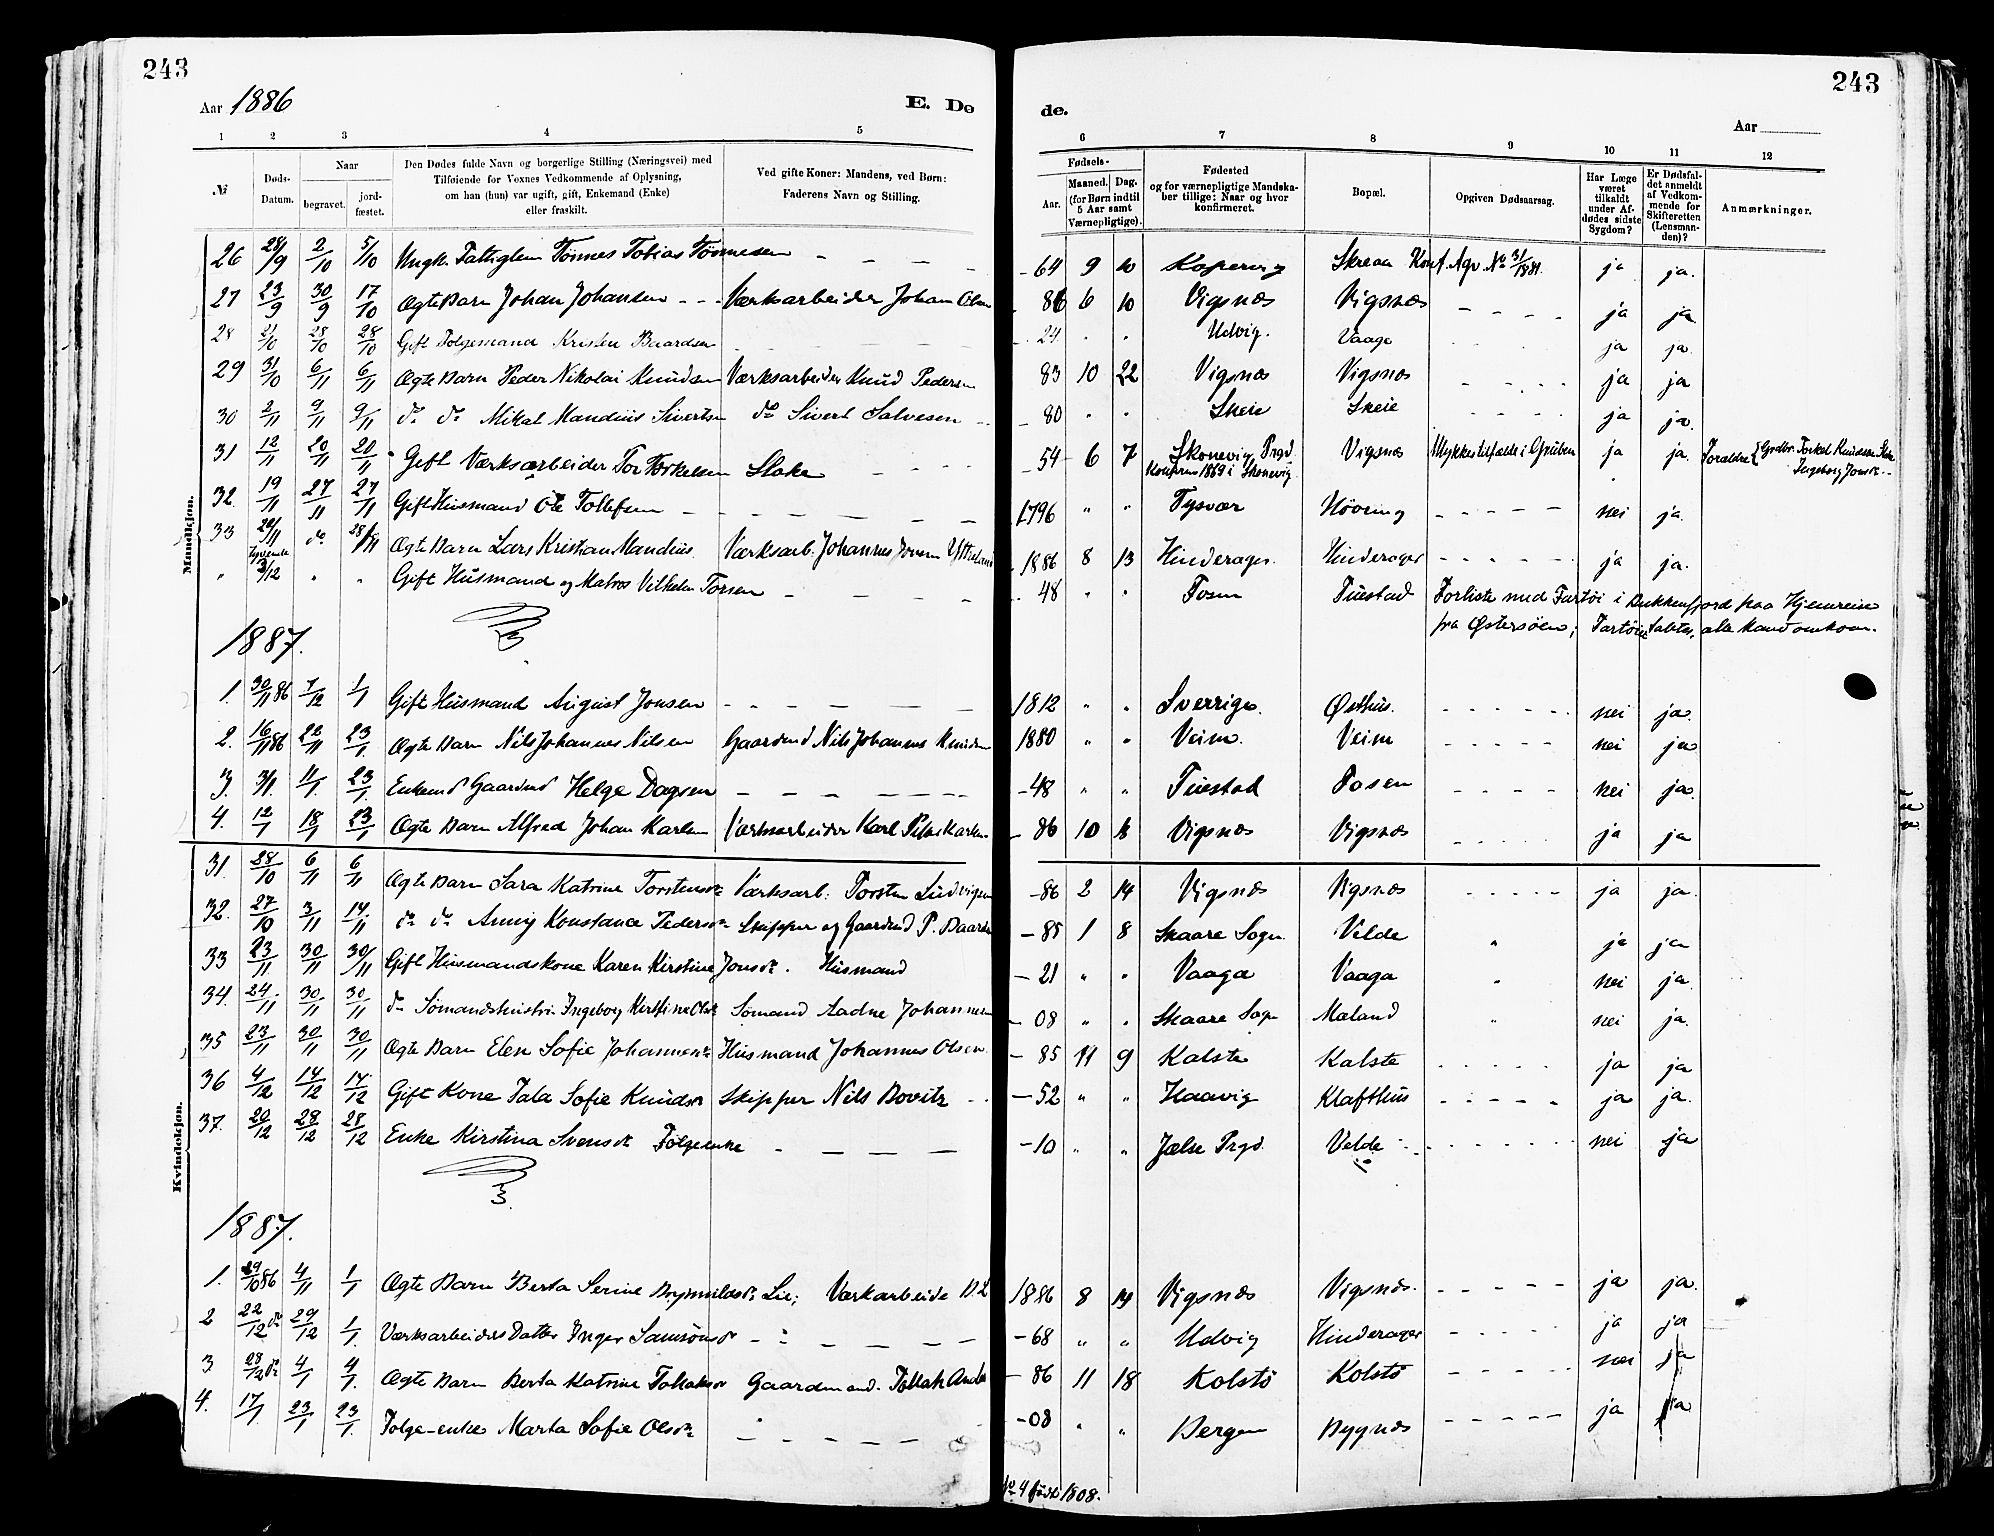 243
243
Aar 1886
E. Dø
de.
Aar
1 2 3 4 5 6 7 8 9 10 11 12
№
Døds-Datum.
Naar
begravet.
jord-fæstet.
Den Dødes fulde Navn og borgerlige Stilling (Næringsvei) med
Tilføiende for Voxnes Vedkommende af Oplysning,
om han (hun) var ugift, gift, Enkemand (Enke)
eller fraskilt.
Ved gifte Koner: Mandens, ved Børn:
Faderens Navn og Stilling.
Fødsels-
Aar.
Maaned. Dag.
(for Børn indtil
5 Aar samt
Værnepligtige).
Fødested
og for værnepligtige Mandska-
ber tillige: Naar og hvor
konfirmeret.
Bopæl.
Opgiven Dødsaarsag.
Har Læge
været
tilkaldt
under Af-
dødes sidste
Sygdom?
Er Dødsfal-
det anmeldt
af Vedkom-
mende for
Skifteretten
(Lensman-
den)?
Anmærkninger.
Mandkjøn.
26 28/9 2/10 5/10 Ungk. Fattiglem Tönnes Tobias Tönnesen - - - - 64 9 10 Kopervig Skreaa Konf. Agv. No 31/1881. ja ja.
27 23/9 30/9 17/10 Ægte Barn Johan Johansen - - Værksarbeider Johan Olsen 86 6 10 Vigsnæs Vigsnæs - - - - ja ja
28 21/10 28/10 28/10 Gift Folgemand Kristen Baardsen - 24 " " Udvig. Vaage ja ja.
29 31/10 6/11 6/11 Ægte Barn Peder Nikolai Knudsen Værksarbeider Knud Pedersen 83 10 22 Vigsnæs Vigsnæs - - - - ja ja
30 2/11 9/11 9/11 do do Mikal Mandius Sivertsen do Sivert Salvesen - 80 " " Skeie Skeie - - - - ja ja.
31 12/11 20/11 20/11 Gift Værksarbeider Tor Torkelsen Stake - - - - 54 6 7 Skonevig Prgd. Vigsnæs Ulykkestilfælde i Gruben ja ja. Foraldre { Grdbr. Torkel Knudsen
Konfirm. 1869 i Skonevig Ingeborg Jonsd. -
32. 19/11 27/11 27/11 Gift Husmand Ole Tollefsen - - - - 1796 " " Tysvær Hövring - - - - nei ja.
33 20/11 do 28/11 Ægte Barn Lars Kristian Mandius. Værksarb. Johannes Ytreland 1886 8 13 Hinderager. Hinderager - - - - ja ja.
Tyvende
" 3/12 " " Gift Husmand og Matros Vilhelm Torsen - - - 48 " " Fosen Tuestad Forliste med Fartöi i Bukkenfjord paa Hjemreise
fra Østersöen; Fartöiet tabtes, alle Mand omkom.
1887.
1. 30/11 86 7/12 1/1 Gift Husmand August Jonsen - - - - 1812 " " Sverrige. Østhus. - - - - nei ja.
2. 16/11 86 22/11 23/1 Ægte Barn Nils Johannes Nilsen Gaardmd Nils Johannes Knudsen 1880 " " Veim. Veim - - - - nei ja
3. 3/1. 11/1 23/1. Enkemd Gaardmd Helge Dagsen - - - - 48 " " Tuestad Fosen - - - - nei ja.
4. 12/1 18/1 23/1 Ægte Barn Alfred Johan Karlsen Værksarbeider Karl - 86 10 Vigsnæs Vigsnæs - - - - ja ja
Kvindekjøn.
31. 28/10 6/11 6/11 Ægte Barn Sara Katrine Torstensdr Værksarb. Torsten Ludvigsen - 86 2 14 Vigsnæs Vigsnæs - - - - ja ja.
32. 27/10 3/11 14/11 do do Anny Konstance Pedersdr Skipper og Gaardmd P. Baardsen - 85 1 8 Skaare Sogn. Velde " ja ja
33 23/11 30/11 30/11 Gift Husmandskone Karen Kirstine Jonsdr. Husmand - 21 " " Vaaga Vaaga " nei ja.
34. 24/11 30/11 30/11 do Sömandshustru Ingeborg Kirstine Olsdr Sömand Aadne Johannesen - 08 " " Skaare Sogn Mæland " nei ja.
35 23/11 30/11 30/11 Ægte Barn Elen Sofie Johannesdr Husmand Johannes Olsen - 85 11 9 Kalstø Kalstø - - - - ja ja
36 4/12 14/12 14/12 Gift Kone Tala Sofie Knudsdr Skipper Nils Bovitz - - 52 " " Haavig Klafthus - - - - ja ja.
37. 20/12 28/12 28/12 Enke Kirstina Svensdr Folgeenke - - - - 10 " " Jælse Prgd. Velde - - - - nei ja
1887.
1. 29/10 86 4/11 1/1 Ægte Barn Berta Serine Brynnildsdr Lie; Værkarbeide B. L 1886 8 14 Vigsnæs Vigsnæs. - - - - ja ja.
2 22/12 do 29/12 1/1. Værksarbeiders Datter Inger Samsonsdr - - - - 68 " " Udvig Hinderager - - - - ja ja
3 28/12 do 4/1 4/1. Ægte Barn Berta Katrine Tollaksdr Gaardmand. Tollak - 86 11 18 Kolstö Kolstö - - - - nei ja
4. 17/1. 23/1 23/1. Folge-enke Marta Sofie Olsdr - - - - 08 " " Bergen Bygnæs - - - - ja ja
No 4 född 1808.